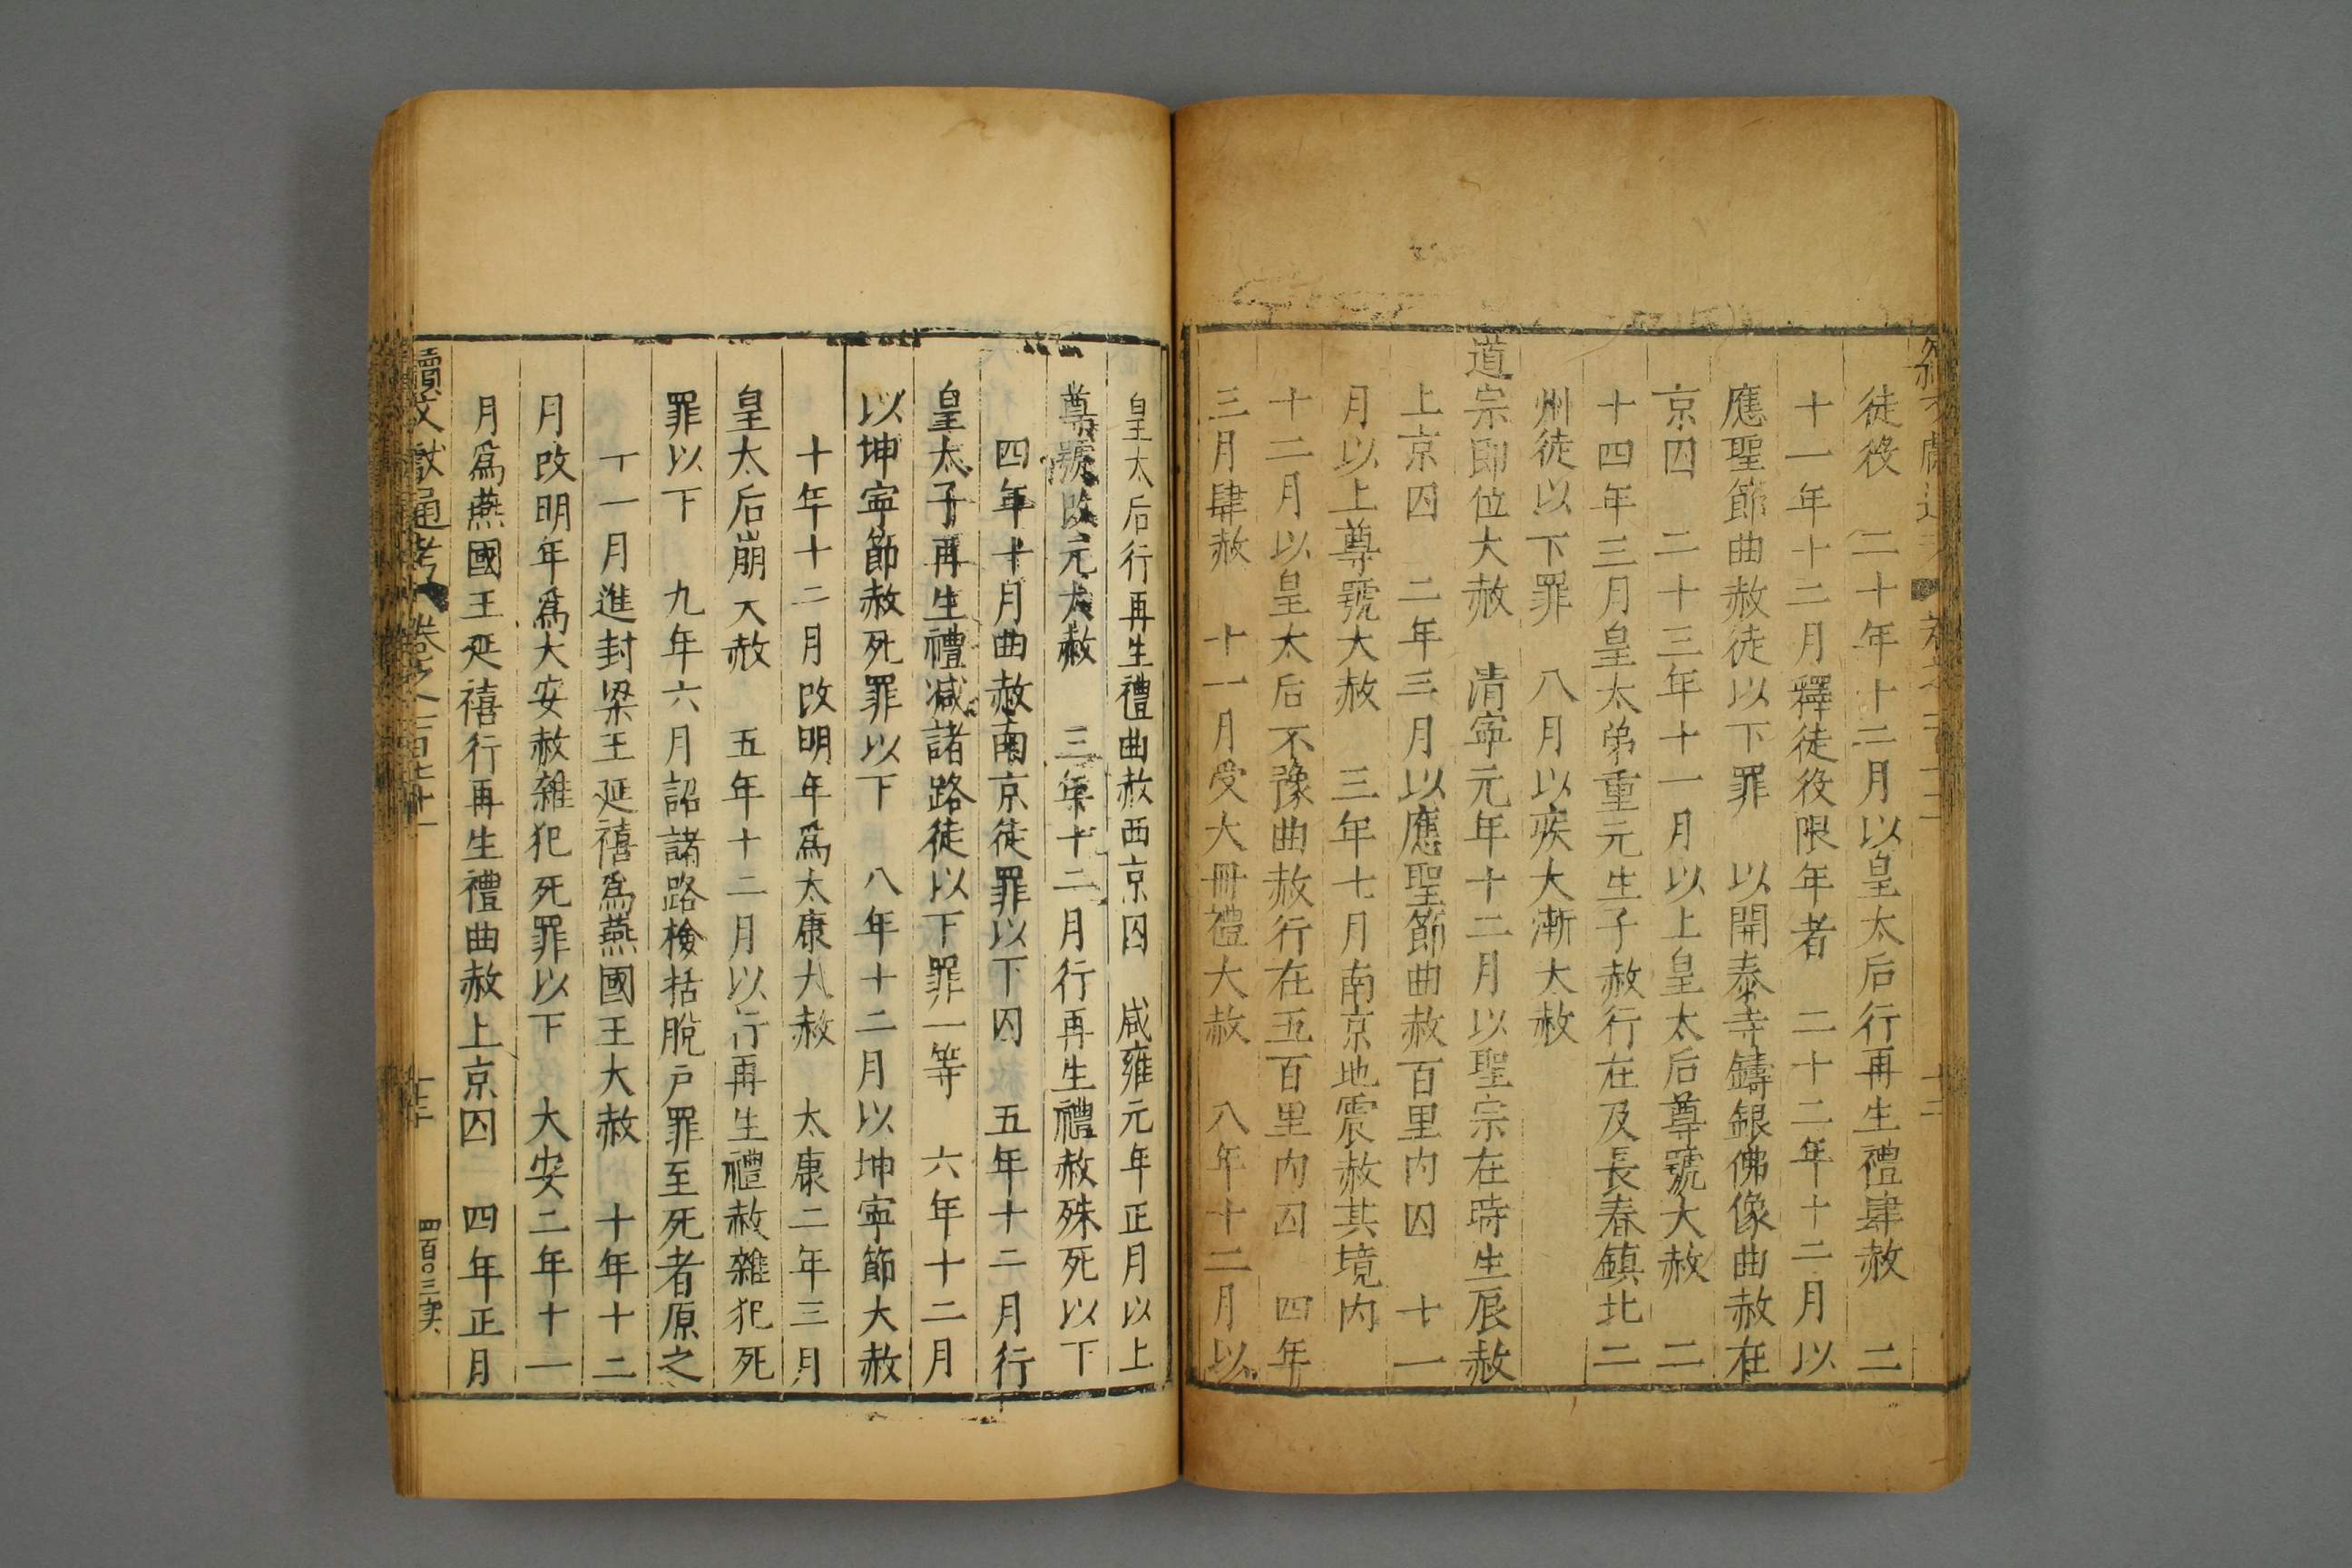 徒役　二十年十二月以皇太后行再生禮肆赦　二
十一年十二月釋徒役限年者　二十二年十二月以
應聖節曲赦徒以下罪　以開泰寺鑄銀佛像曲赦在
京囚　二十三年十一月以上皇太后尊號大赦　二
十四年三月皇太弟重元生子赦行在及長春鎮北二
州徒以下罪　八月以疾大漸大赦
道宗即位大赦　清寧元年十二月以聖宗在時生辰赦
上京囚　二年三月以應聖節曲赦百里内囚　十一
月以上尊號大赦　三年七月南京地震赦其境内
十二月以皇太后不豫曲赦行在五百里内囚　四年
三月肆赦　十一月受大冊禮大赦　八年十二月以
皇太后行再生禮曲赦西京囚　咸雍元年正月以上
尊號改元大赦　三年十二月行再生禮赦殊死以下
四年十月曲赦南京徒罪以下囚　五年十二月行
皇太子再生禮減諸路徒以下罪一等　六年十二月
以坤寧節赦死罪以下　八年十二月以坤寧節大赦
十年十二月改明年爲太康大赦　太康二年三月
皇太后崩大赦　五年十二月以行再生禮赦雜犯死
罪以下　九年六月詔諸路檢括脫戶罪至死者原之
十一月進封梁王延禧爲燕國王大赦　十年十二
月改明年爲大安赦雜犯死罪以下　大安二年十一
月爲燕國王延禧行再生禮曲赦上京囚　四年正月
續文獻通考　卷之一百七十一　十三　四百〇三